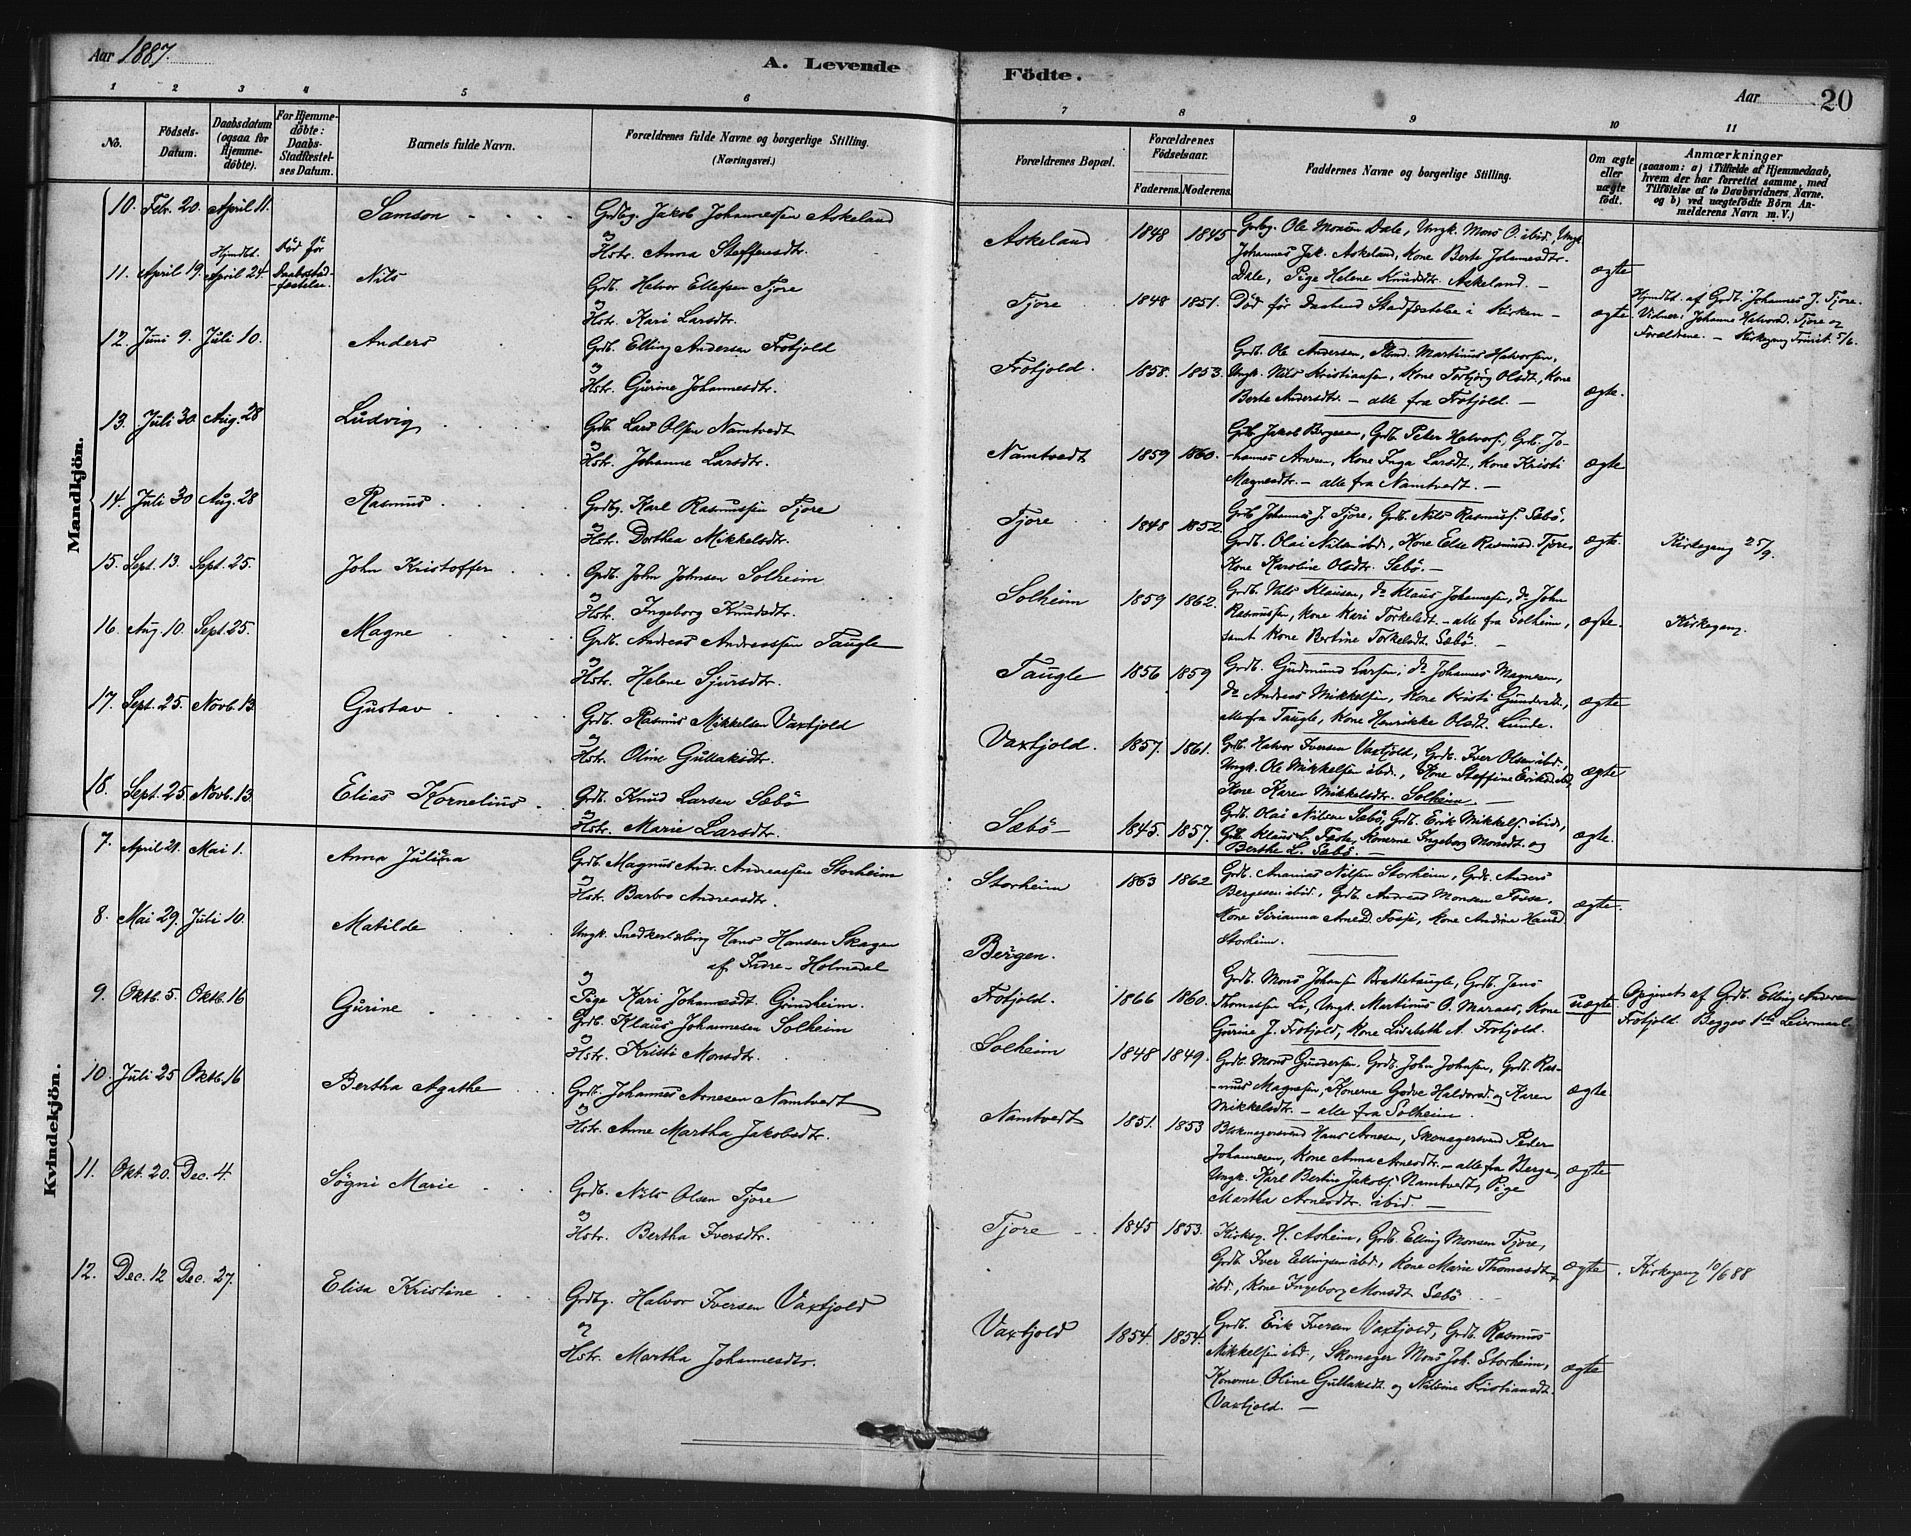 Aar 1887.
A. Levende Födte.
Aar 20
1 2 3 4 5 6 7 8 9 10 11
No.
Födsels-Datum.
Daabsdatum (ogsaa for Hjemme-döbte).
For Hjemme-döbte: Daabs-Stadfæstel-ses Datum.
Barnets fulde Navn.
Forældrenes fulde Navne og borgerlige Stilling.
(Næringsvei.)
Forældrenes Bopæl.
Forældrenes Födselsaar.
Faderens. Moderens.
Faddernes Navne og borgerlige Stilling.
Om ægte eller uægte födt.
Anmærkninger
(saasom: a) i Tilfælde af Hjemmedaab, hvem der har forrettet samme, med Tilföielse af to Daabsvidners Navne, og b) ved uægtefödte Börn An-melderens Navn m. V.)
Mandkjön.
10. Febr. 20. April 11. Samson Grdbg. Jakob Johannessen Askeland
og
Hstr. Anna Steffensdtr.
Askeland 1848 1845 Grdbg. Ole Monsen Dale, Ungk. Mons O. ibid, Ungk.
Johannes Jak. Askeland, Kone Berte Johannesdtr.
Dale, Pige Helene Knudsdtr. Askeland. —
ægte
11. April 19. Hjmdbt. April 24. Död för Daabsstad-fæstelse Nils Grdb. Halvor Ellefsen Tjore
og
Hstr. Kari Larsdtr.
Tjore 1848 1851. Död för Daabens Stadfæstelse i Kirken —
ægte. Hjmdbt. af Grdb. Johannes J. Tjore.
Vidner: Johanne Halvorsd. Tjore og
Forældrene. —
12. Juni 9. Juli 10. Anders Grdb. Elling Andersen Frotjold
og
Hstr. Gurine Johannesdtr.
Frotjold. 1858. 1853. Grdb. Ole Andersen, Martinus Halvorsen,
Ungk. Nils Kristiansen, Kone Torbjörg Olsdt, Kone
Berte Andersdtr. — alle fra Frotjold. —
ægte.
13. Juli 30. Aug. 28 Ludvig Grdb. Lars Olsen Namtvedt
og
Hstr. Johanne Larsdtr.
Namtvedt 1859 1860. Grdb. Jakob Bergesen, Grdb. Peter Halvors., Grb. Jo-
hannes Arnesen, Kone Inga Larsdt., Kone Kristi
Magnesdtr. — alle fra Namtvedt. —
ægte
14. Juli 30 Aug. 28 Rasmus Grdbg. Karl Rasmussen Tjore
og
Hstr. Dorthea Mikkelsdtr.
Tjore 1848 1852. Grb. Johannes J. Tjore, Grb. Nils Rasmuss. Sæbö,
Grdb. Olai Nilsen ibd, Kone Else Rasmusd. Tjore
Kone Karoline Olsdtr. Sæbö. —
ægte. Kirkegang 25/9.
15. Sept. 13. Sept. 25. John Kristoffer Grdb. John Johnsen Solheim
og
Hstr. Ingeborg Knudsdtr.
Solheim 1859 1862. Grdb. Nils Klausen, do Klaus Johannesen, do John
Rasmussen, Kone Kari Torkelsdt. — alle fra Solheim,
samt Kone Bertine Torkelsdt. Sæbö.
ægte. Kirkegang.
16. Aug. 10. Sept. 25. Magne Grdb. Andreas Andreassen Taugle
og
Hstr. Helene Sjursdtr.
Taugle 1856 1859 Grdb. Gudmund Larsen, do Johannes Magnesen,
do Andreas Mikkelsen, Kone Kristi Gundersdt.,
alle fra Taugle, Kone Henrikke Olsdt. Lunde.
ægte
17. Sept. 25. Novb. 13. Gustav Grdb. Rasmus Mikkelsen Vaxtjold
og
Hstr. Oline Gullaksdtr.
Vaxtjold. 1857. 1861. Grb. Halvor Iversen Vaxtjold, Grdb. Iver Olsen ibd.,
Ungk. Ole Mikkelsen ibd., Kone Steffine Eriksd ibd,
Kone Karen Mikkelsdtr. Solheim. —
ægte
18. Sept. 25. Novb. 13. Elias Kornelius. Grdb. Knud Larsen Sæbö
og
Hstr. Marie Larsdtr.
Sæbö — 1845. 1857. Grdb. Olai Nilsen Sæbö, Grdb. Erik Mikkels. ibid,
Grb. Klaus L. Konerne Ingeborg Monsdt. og
Berthe L. Sæbö. —
ægte.
Kvindekjön.
7. April 21. Mai 1. Anna Juliana Grdb. Magnus Andr. Andreassen Storheim
og
Hstr. Barbro Andreasdtr.
Storheim 1863 1862 Grdb. Ananias Nilsen Storheim, Grdb. Anders
Bergesen ibid., Grdb. Andreas Monsen Fosse,
Kone Sirianna Arnesd. Fosse, Kone Andrea Hansd
Storheim.
ægte.
8. Mai 29. Juli 10. Matilde Ungk. Snedkerlærling Hans Hansen Skagen
af Indre-Holmedal
og
Pige Kari Johannesdt. Gjerdheim.
Bergen.
Frotjold. 1866 1860. Grdb. Mons Johansen Brattetaugle, Grdb. Jens
Thomassen Lö, Ungk. Martinus O. Maraas, Kone
Gurine J. Frotjold, Kone Lisebeth A. Frotjold.
uægte. Opgivet af Grdb. Elling Andersen
Frotjold. Begges 1ste Leiermaal.
9. Oktb. 5. Oktb. 16 Gurine Grdb. Klaus Johannesen Solheim
og
Hstr. Kristi Monsdtr.
Solheim 1848 1849. Grdb. Mons Gundersen, Grdb. John Johnsen, Grdb. Ras-
mus Magnesen, Konerne Godve Haldorsd. og Karen
Mikkelsdtr. — alle fra Solheim.
ægte.
10. Juli 25 Oktb. 16 Bertha Agathe Grdb. Johannes Arnesen Namtvedt
og
Hstr. Anne Martha Jakobsdtr.
Namtvedt 1851. 1853 Blikmagersvend Hans Arnesen, Skomagersvend Peder
Johannesen, Kone Anna Arnesdtr. — alle fra Bergen,
Ungk. Karl Bertin Jakobs. Namtvedt, Pige
Martha Arnesdtr. ibid. —
ægte
11. Okt. 20. Dec. 4. Sögni Marie Grdb. Nils Olsen Tjore
og
Hstr. Bertha Iversdtr.
Tjore 1845 1853. Kirksg. H. Asheim, Grdb. Elling Monsen Tjore,
Grdb. Iver Ellingsen ibd., Kone Marie Thomasdt.
ibd., Kone Ingeborg Monsdt. Sæbö
ægte. Kirkegang 10/6 88
12. Dec. 12 Dec. 27. Elisa Kristine Grdbg. Halvor Iversen Vaxtjold
og
Hstr. Martha Johannesdtr.
Vaxtjold 1854. 1854. Grdb. Erik Iversen Vaxtjold, Grdb. Rasmus
Mikkelsen ibd., Skomager Mons Joh. Storheim,
Konerne Oline Gullaksdt. og Nilsine Kristiansdt.
Vaxtjold. —
ægte